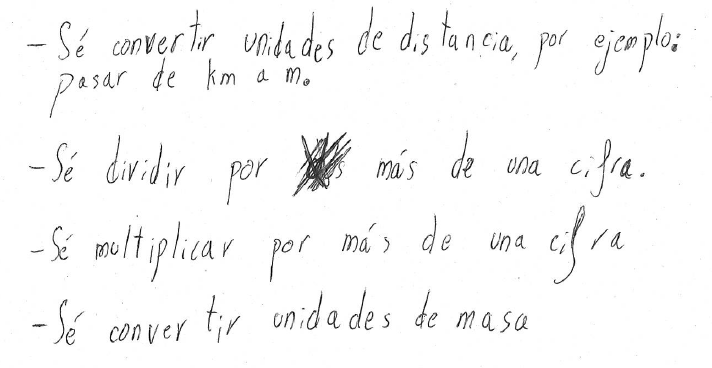 - Sé convertir unidades de distancia, por ejemplo:
pasar de km a m.
- Sé dividir por más de una cifra.
- Sé multiplicar por más de una cifra
- Sé convertir unidades de masa